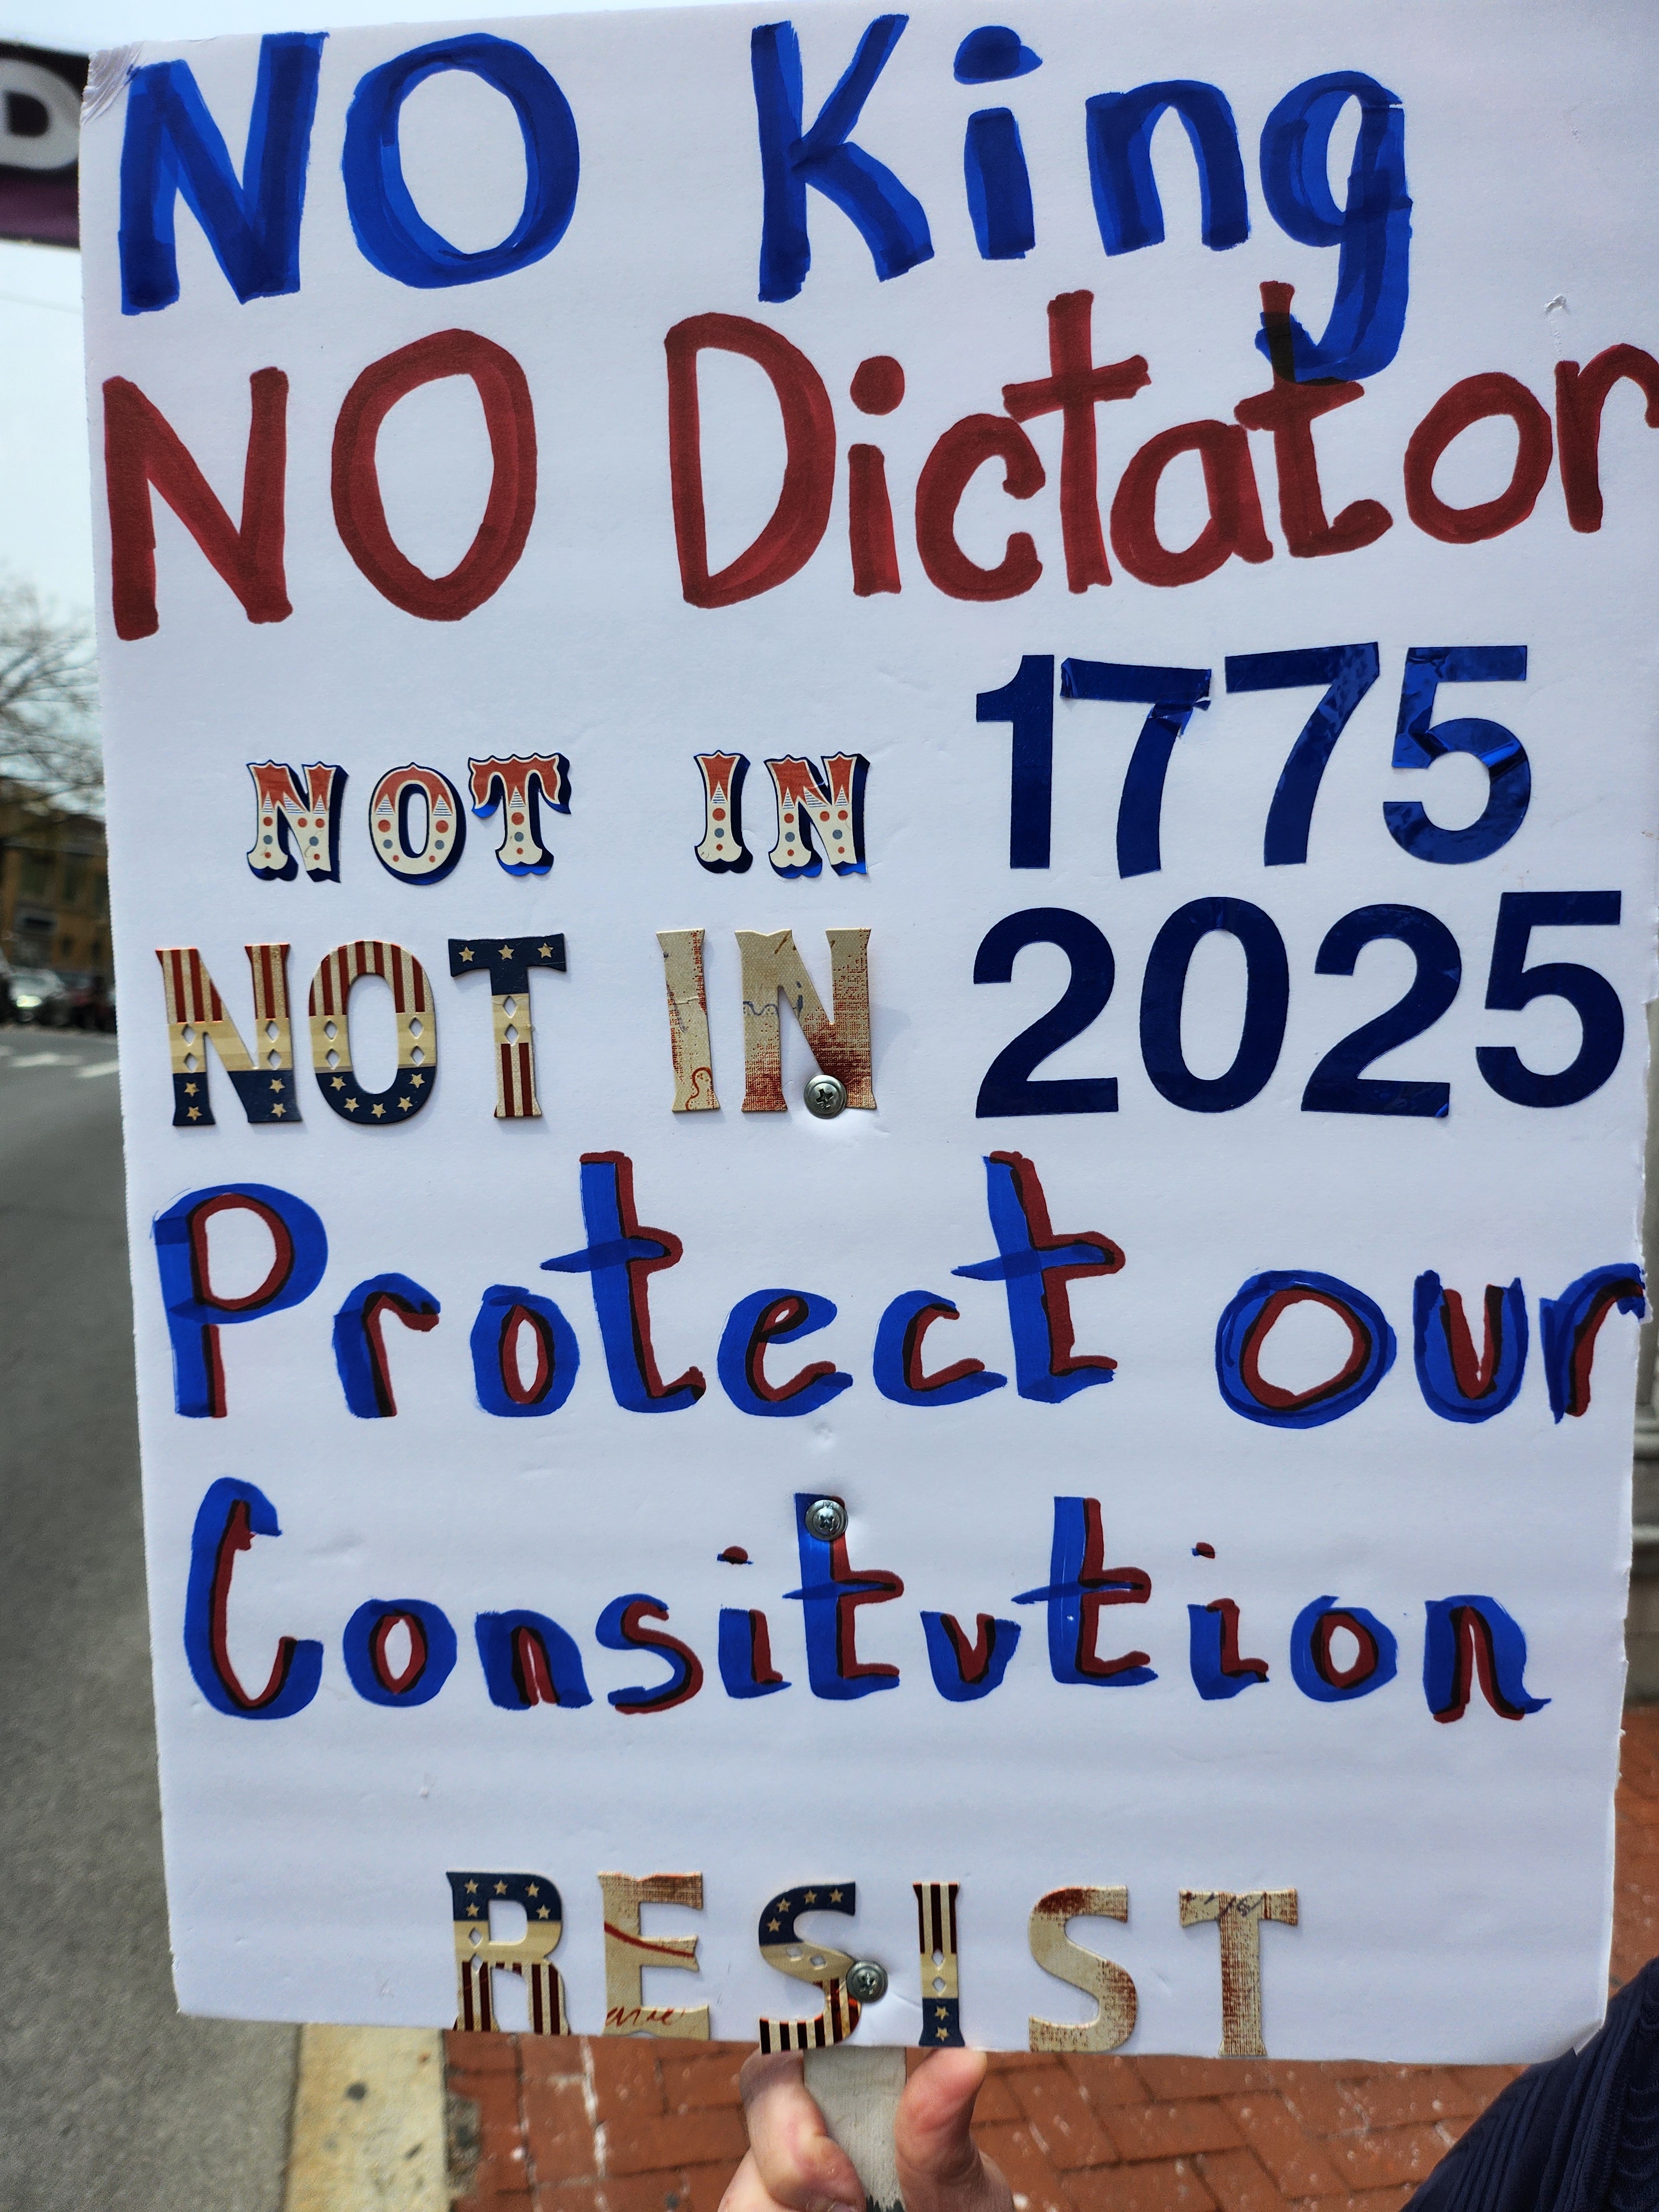 D
NO King
NO Dictator
NOT IN 1775
NOT IN 2025
Protect our
Consitution
RESIST